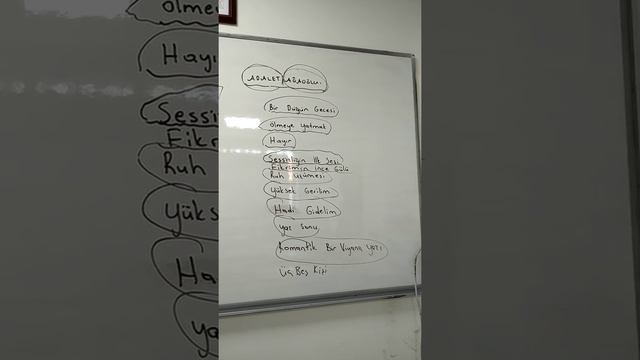 ADALET AĞAOĞLU
Bir Düğün Gecesi
Ölmeye Yatmak
Hayır
Sessizliğin İlk Sesi
Fikrimin İnce Gülü
Ruh Üşümesi
Yüksek Gerilim
Hadi Gidelim
Yaz Sonu
Romantik Bir Viyana Yazı
Üç Beş Kişi